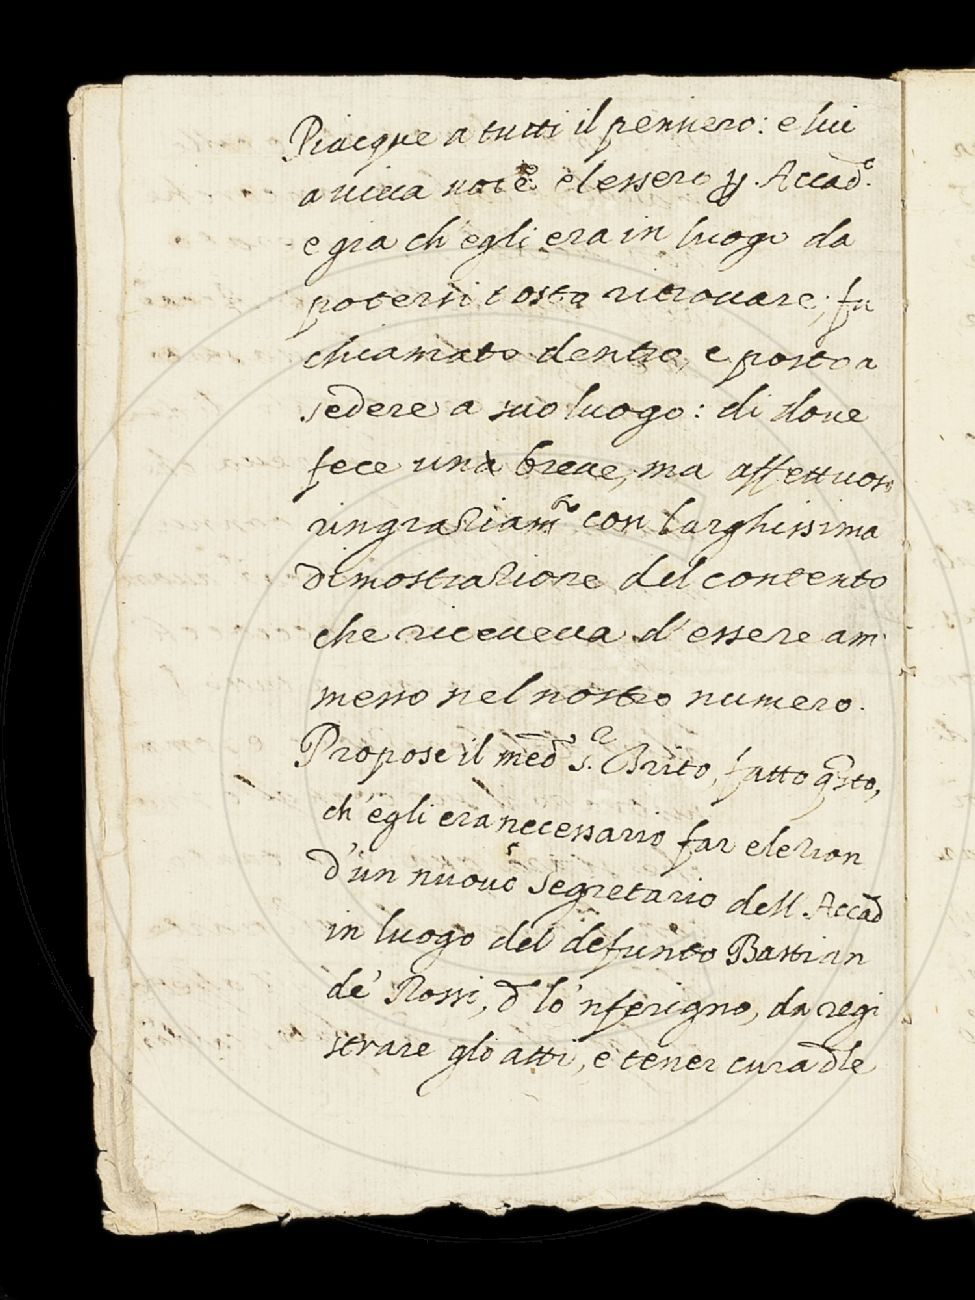 Piacque a tutti il pensiero: e lui
a viva noce elessero Accad.
e gia ch'egli era in luogo da
potersi tosto ritrovare, fu
chiamato dentro, e posto a
sedere a suo luogo: di dove
fece una breve, ma affettuos
ringraziam.to con larghissima
dimostrazione del contento
che riceveva d'essere am
messo nel nostro numero.
Propose il med.o S.r Brito, fatto q.sto,
ch'egli era necessario far elezion
d'un nuovo Segretario dell Accad
in luogo del defunto Bastian
de' Rossi, d.o lo 'nferigno, da regi
strare gli atti, e tener cura dle